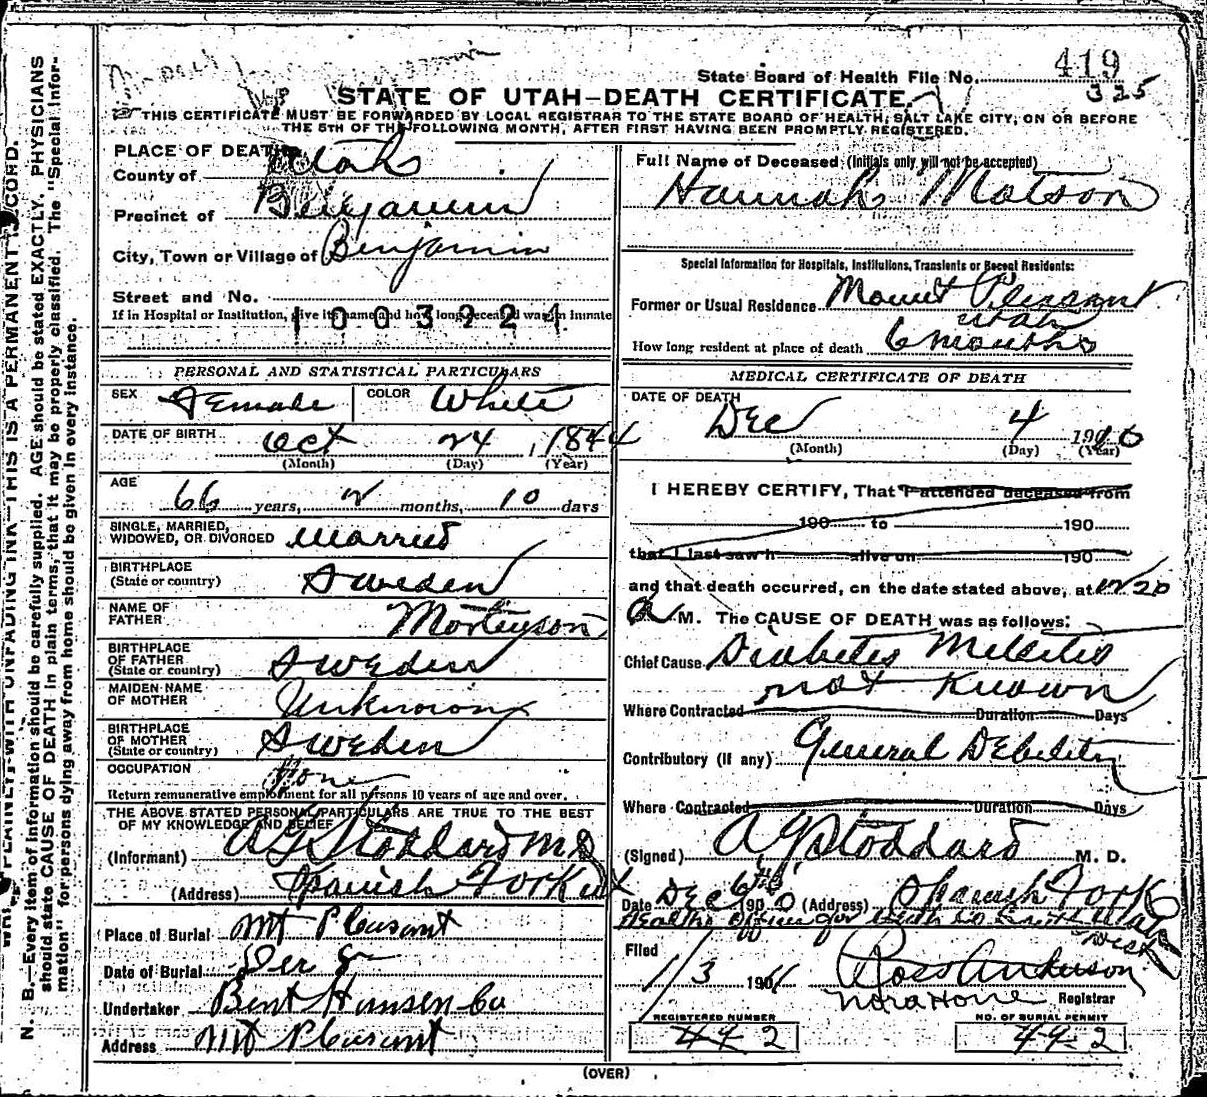 State Board of Health File No. 419
325
STATE OF UTAH—DEATH CERTIFICATE.
THIS CERTIFICATE MUST BE FORWARDED BY LOCAL REGISTRAR TO THE STATE BOARD OF HEALTH, SALT LAKE CITY, ON OR BEFORE
THE 5TH OF THE FOLLOWING MONTH, AFTER FIRST HAVING BEEN PROMPTLY REGISTERED.
PLACE OF DEATH
County of Utah
Precinct of Benjamin
City, Town or Village of Benjamin
Street and No.
If in Hospital or Institution, give its name and how long deceased was an inmate
1003221
PERSONAL AND STATISTICAL PARTICULARS
SEX Female COLOR White
DATE OF BIRTH Oct 24, 1844
(Month) (Day) (Year)
AGE
66 years, 2 months, 10 days
SINGLE, MARRIED,
WIDOWED, OR DIVORCED Married
BIRTHPLACE
(State or country) Sweden
NAME OF
FATHER Mortenson
BIRTHPLACE
OF FATHER
(State or country) Sweden
MAIDEN NAME
OF MOTHER Unknown
BIRTHPLACE
OF MOTHER
(State or country) Sweden
OCCUPATION None
Return remunerative employment for all persons 10 years of age and over.
THE ABOVE STATED PERSONAL PARTICULARS ARE TRUE TO THE BEST
OF MY KNOWLEDGE AND BELIEF
(Informant) A G Stoddard M D
(Address) Spanish Fork Ut
Place of Burial Mt Pleasant
Date of Burial Dec
Undertaker Bent Hansen Co
Address Mt Pleasant
Full Name of Deceased (Initials only will not be accepted)
Hannah Matson
Special Information for Hospitals, Institutions, Transients or Recent Residents:
Former or Usual Residence Mount Pleasant
Utah
How long resident at place of death 6 months
MEDICAL CERTIFICATE OF DEATH
DATE OF DEATH
Dec 4 1910
(Month) (Day) (Year)
I HEREBY CERTIFY, That I attended deceased from
190 to 190
that I last saw h alive on 190
and that death occurred, on the date stated above, at 12/20
A M. The CAUSE OF DEATH was as follows:
Chief Cause Diabetes Melitis
not Known
Where Contracted Duration Days
Contributory (if any) General Debility
Where Contracted Duration Days
(Signed) A G Stoddard M. D.
Date Dec 6th 1910 (Address) Spanish Fork
Health Officer for Utah Co
Dist
Filed
1/3 1911 Ross Anderson
Nora Hone Registrar
REGISTERED NUMBER
2
NO. OF BURIAL PERMIT
2
(OVER)
N. B.—Every item of information should be carefully supplied. AGE should be stated EXACTLY. PHYSICIANS
should state CAUSE OF DEATH in plain terms, that it may be properly classified. The "Special Infor-
mation" for persons dying away from home should be given in every instance.
WRITE PLAINLY WITH UNFADING INK—THIS IS A PERMANENT RECORD.